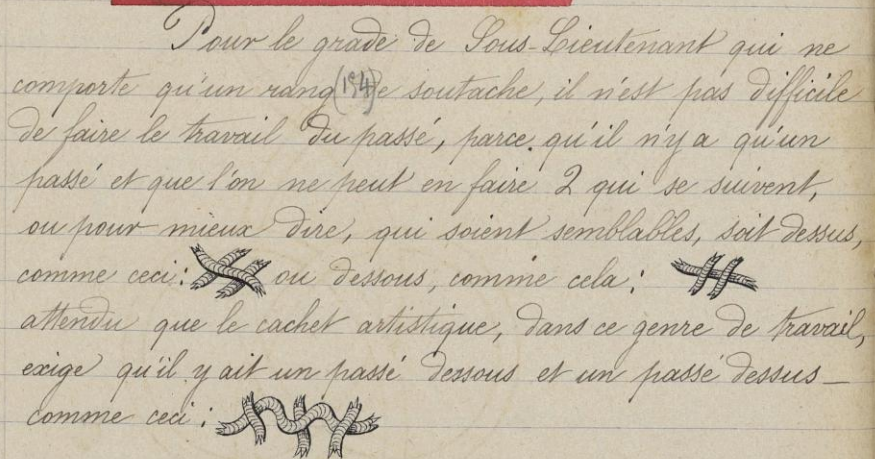 Pour le grade de Sous-Lieutenant qui ne
comporte qu'un rang (194) de soutache, il n'est pas difficile
de faire le travail du passé, parce qu'il n'y a qu'un
passé et que l'on ne peut en faire 2 qui se suivent,
ou pour mieux dire, qui soient semblables, soit dessus,
comme ceci: ou dessous, comme cela:
attendu que le cachet artistique, dans ce genre de travail,
exige qu'il y ait un passé dessous et un passé dessus_
comme ceci: